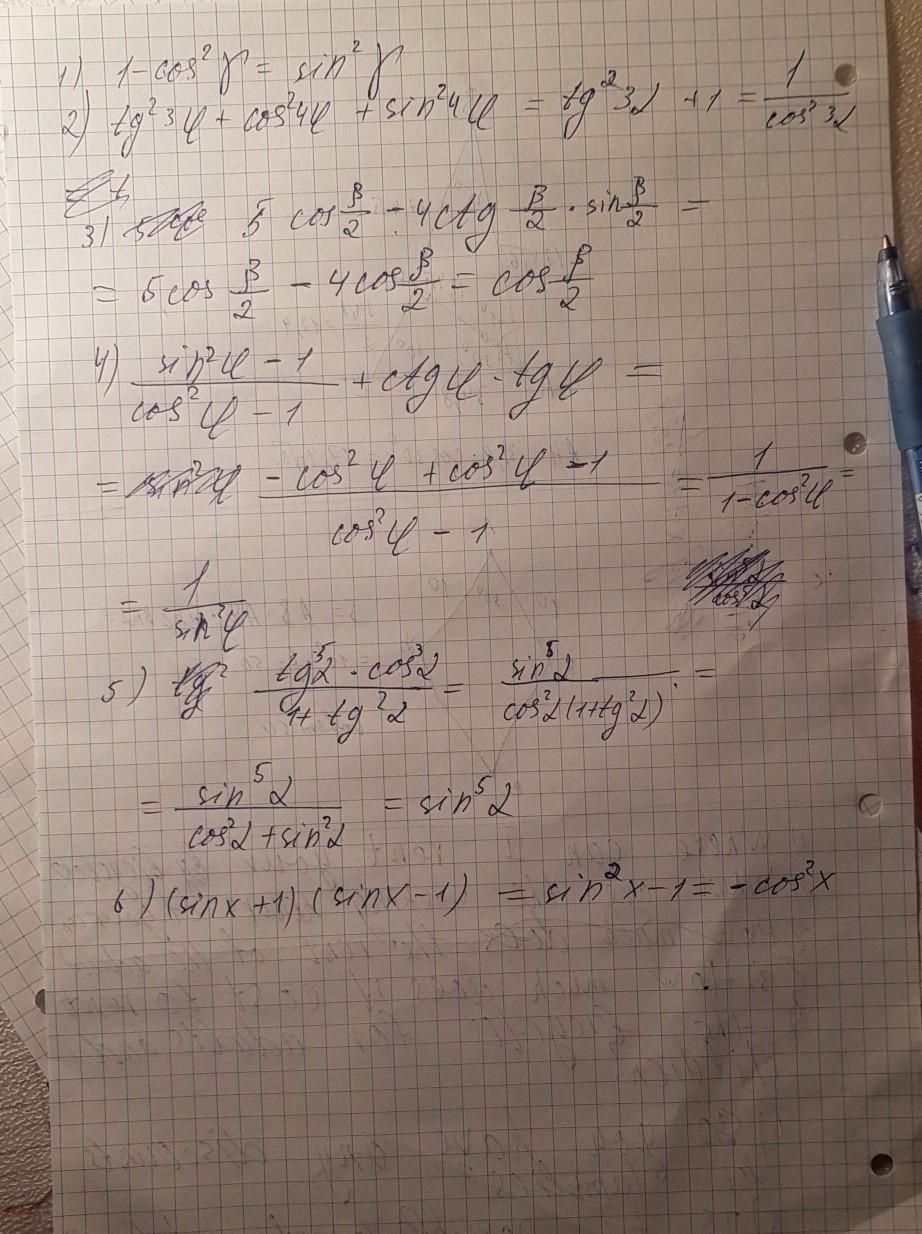 1) 1-cos²γ = sin²γ
2) tg²3φ + cos²4φ + sin²4φ = tg²32 +1 = 1/cos²32
3) 5 cos β/2 - 4ctg β/2 · sin β/2 =
= 5cos β/2 - 4cos β/2 = cos β/2
4) (sin²φ - 1)/(cos²φ - 1) + ctgφ · tgφ =
= (-cos²φ + cos²φ - 1)/(cos²φ - 1) = 1/(1-cos²φ) =
= 1/sin²φ
5) (tg⁵2 · cos³2)/(1+ tg²2) = sin⁵2/(cos²2(1+tg²2)) =
= sin⁵2/(cos²2 + sin²2) = sin⁵2
6) (sinx +1) · (sinx - 1) = sin²x - 1 = -cos²x